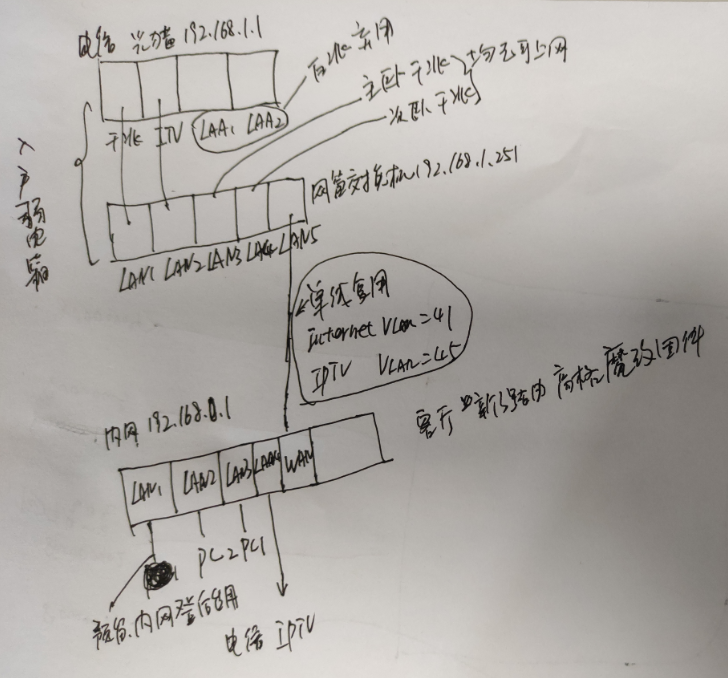 电信 光猫 192.168.1.1
百兆弃用
主卧千兆
次卧千兆
均可上网
千兆 ITV LAA1 LAA2
入户弱电箱
网管交换机192.168.1.251
LAN1 LAN2 LAN3 LAN4 LAN5
单线复用
Internet VLan=41
IPTV VLAN=45
客厅 新路由 高格 魔改固件
内网 192.168.0.1
LAN1 LAN2 LAN3 LAN4 WAN
PC2 PC1
预留.内网登陆用
电信 IPTV